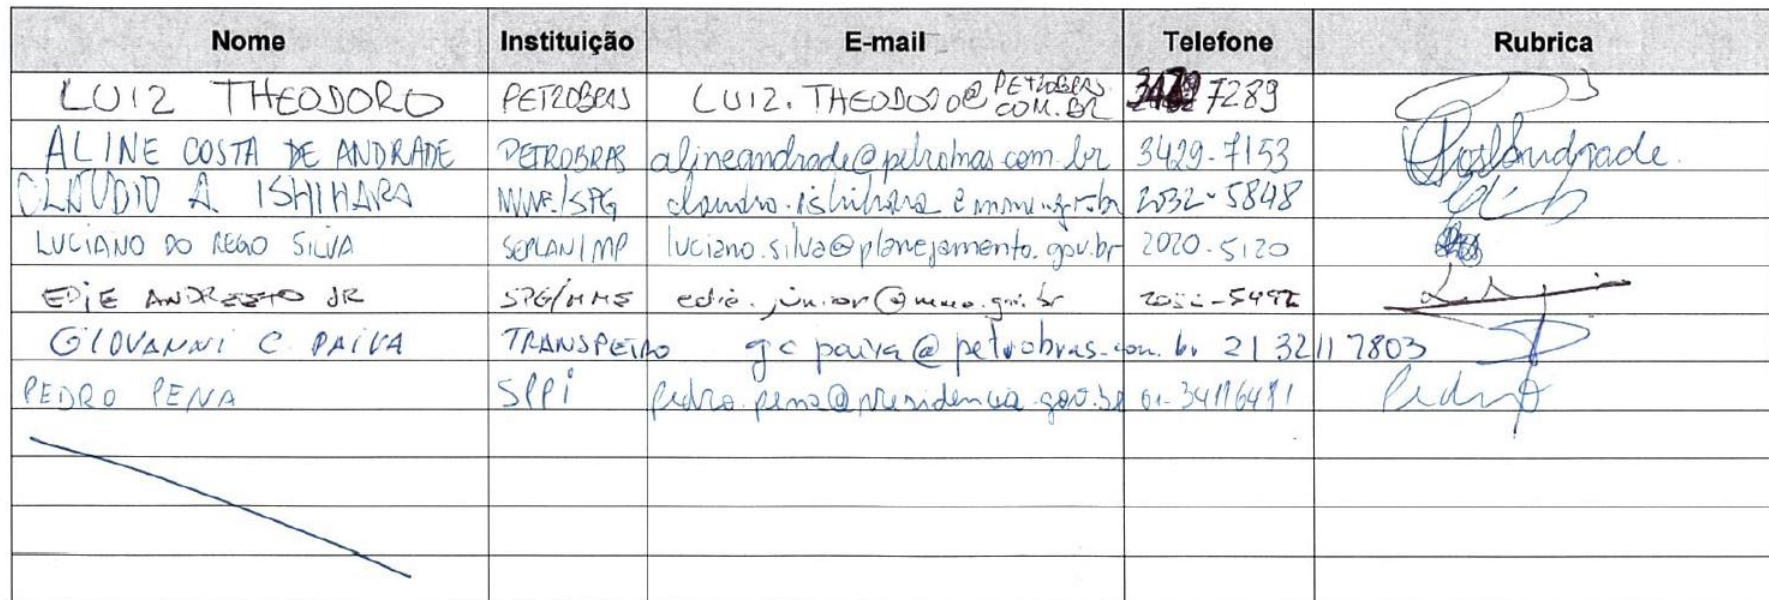 Nome Instituição E-mail Telefone Rubrica
LUIZ THEODORO PETROBRAS LUIZ.THEODORO@PETROBRAS.COM.BR 7289
ALINE COSTA DE ANDRADE PETROBRAS alineandrade@petrobras.com.br 3429-7153
CLAUDIO A. ISHIHARA MME/SPG claudio.ishihara@mme.gov.br 2032-5848
LUCIANO DO REGO SILVA SEPLAN/MP luciano.silva@planejamento.gov.br 2020-5120
EDIE ANDREETO JR SPG/MME edie.junior@mme.gov.br
GIOVANNI C. PAIVA TRANSPETRO gcpaiva@petrobras.com.br 21 3211 7803
PEDRO PENA SPPI pedro.pena@presidencia.gov.br Pedro